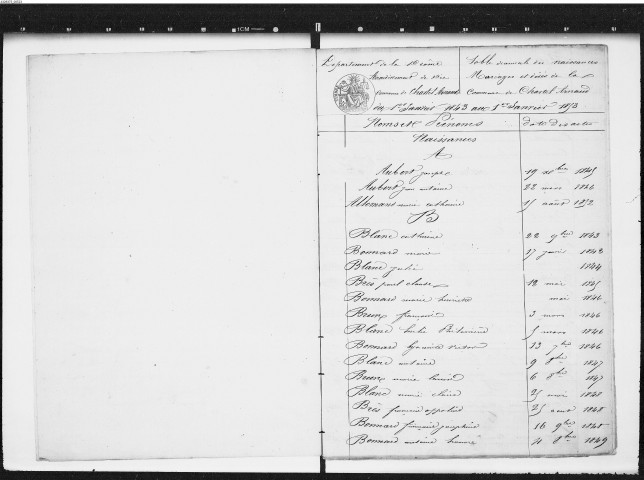 Département de la Drôme
Arrondissement de Die
Commune de Chastel Arnaud
Table décennale des naissances
Mariages et décès de la
Commune de Chastel Arnaud
du 1er Janvier 1843 au 1er Janvier 1853
Noms et Prénoms date des actes
Naissances
A
Aubert joseph 19 xbre 1845
Aubert jean antoine 22 mars 1846
Allemand marie catherine 15 août 1852
B
Blanc catherine 22 9bre 1843
Bonnard marie 17 janv 1843
Blanc julie 1844
Brès paul claude 12 mai 1845
Bonnard marie henriette mai 1846
Brun françois 3 mars 1846
Blanc 5 mars 1846
Bonnard victor 13 7bre 1846
Blanc antoine 9 8bre 1847
Brun marie 6 8bre 1847
Blanc marie claire 25 mai 1848
Brès françois appolin 25 août 1848
Bonnard françois joséphine 16 9bre 1848
Bonnard antoine honoré 4 8bre 1849